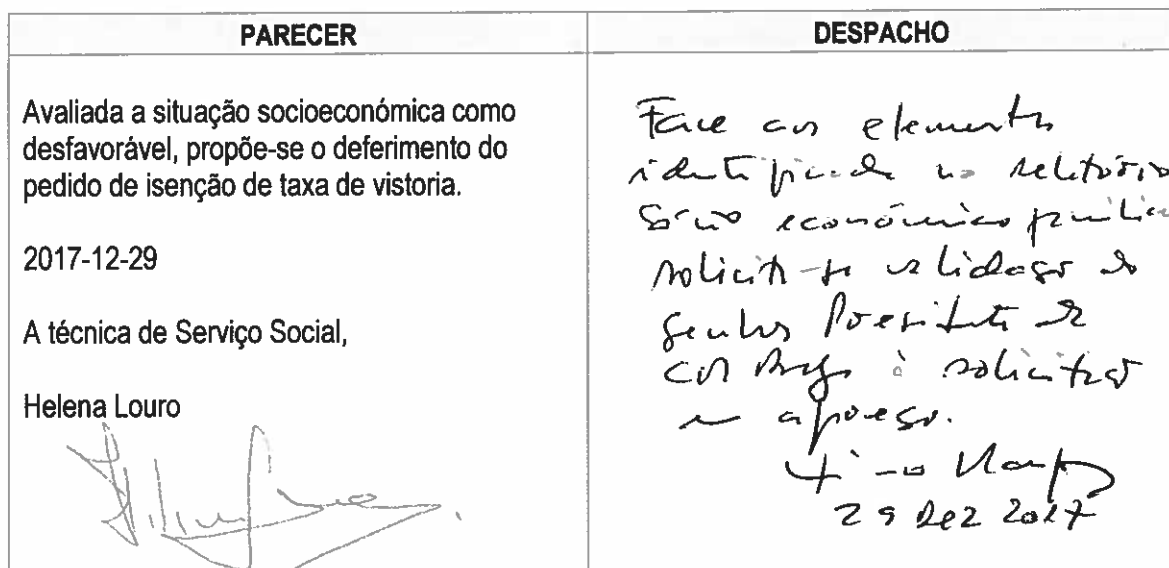 PARECER
Avaliada a situação socioeconómica como
desfavorável, propõe-se o deferimento do
pedido de isenção de taxa de vistoria.
2017-12-29
A técnica de Serviço Social,
Helena Louro
DESPACHO
Face aos elementos
identificados no relatório
económico
solicita-se validação do
Senhor Presidente da
à solicitação
em apreço.
29 Dez 2017